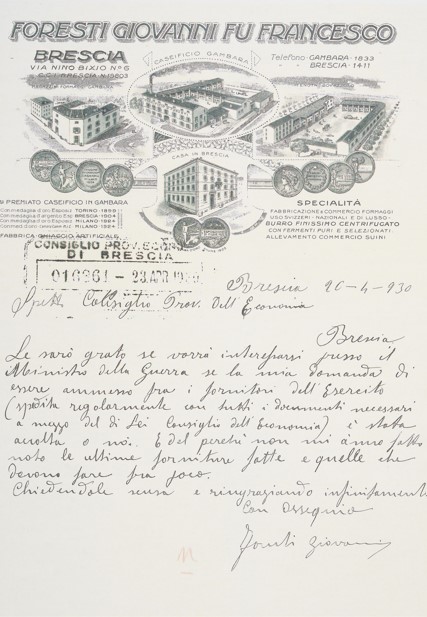 FORESTI GIOVANNI FU FRANCESCO
BRESCIA
VIA NINO BIXIO Nº 6
C.C.I. BRESCIA N. 19603
CASEIFICIO GAMBARA
Telefono - GAMBARA - 1833
BRESCIA - 1411
CASA IN BRESCIA
PREMIATO CASEIFICIO IN GAMBARA
Con medaglia d'oro Esposiz. TORINO - 1898
Con medaglia d'argento Esp. BRESCIA - 1904
MILANO
MILANO
FABBRICA GHIACCIO ARTIFICIALE
SPECIALITÀ
FABBRICAZIONE E COMMERCIO FORMAGGI
USO SVIZZERI - NAZIONALI E DI LUSSO -
BURRO FINISSIMO CENTRIFUGATO
CON FERMENTI PURI E SELEZIONATI
ALLEVAMENTO COMMERCIO SUINI
CONSIGLIO PROV. ECONOM
DI BRESCIA
Brescia 20-4-930
Spett. Consiglio Prov. dell'Economia
Brescia
Le sarò grato se vorrà interessarsi presso il
Ministro della Guerra se la mia domanda di
essere ammesso fra i fornitori dell'Esercito
(spedita regolarmente con tutti i documenti necessari
a mezzo del di Lei Consiglio dell'Economia) è stata
accolta o noi. E del perchè non mi ànno fatto
noto le ultime forniture fatte e quelle che
devono fare fra poco.
Chiedendole scusa e ringraziando infinitamente
Con Ossequio
Foresti Giovanni